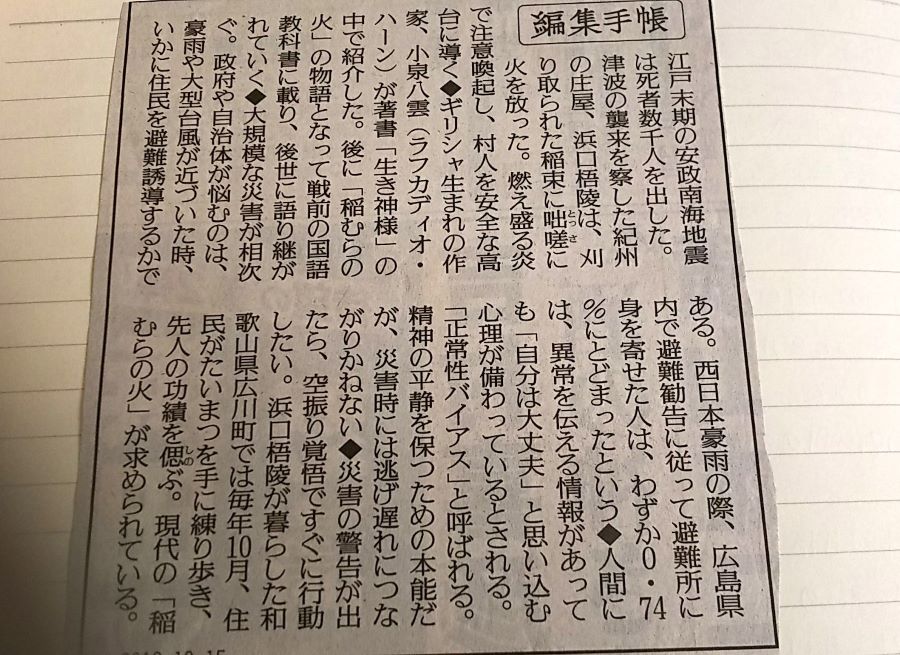 編集手帳
江戸末期の安政南海地震
は死者数千人を出した。
津波の襲来を察した紀州
の庄屋、浜口梧陵は、刈
り取られた稲束に咄嗟に
とっさ
火を放った。燃え盛る炎
で注意喚起し、村人を安全な高
台に導く◆ギリシャ生まれの作
家、小泉八雲（ラフカディオ・
ハーン）が著書「生き神様」の
中で紹介した。後に「稲むらの
火」の物語となって戦前の国語
教科書に載り、後世に語り継が
れていく◆大規模な災害が相次
ぐ。政府や自治体が悩むのは、
豪雨や大型台風が近づいた時、
いかに住民を避難誘導するかで
ある。西日本豪雨の際、広島県
内で避難勧告に従って避難所に
身を寄せた人は、わずか0・74
%にとどまったという◆人間に
は、異常を伝える情報があって
も「自分は大丈夫」と思い込む
心理が備わっているとされる。
「正常性バイアス」と呼ばれる。
精神の平静を保つための本能だ
が、災害時には逃げ遅れにつな
がりかねない◆災害の警告が出
たら、空振り覚悟ですぐに行動
したい。浜口梧陵が暮らした和
歌山県広川町では毎年10月、住
民がたいまつを手に練り歩き、
先人の功績を偲ぶ。現代の「稲
しの
むらの火」が求められている。